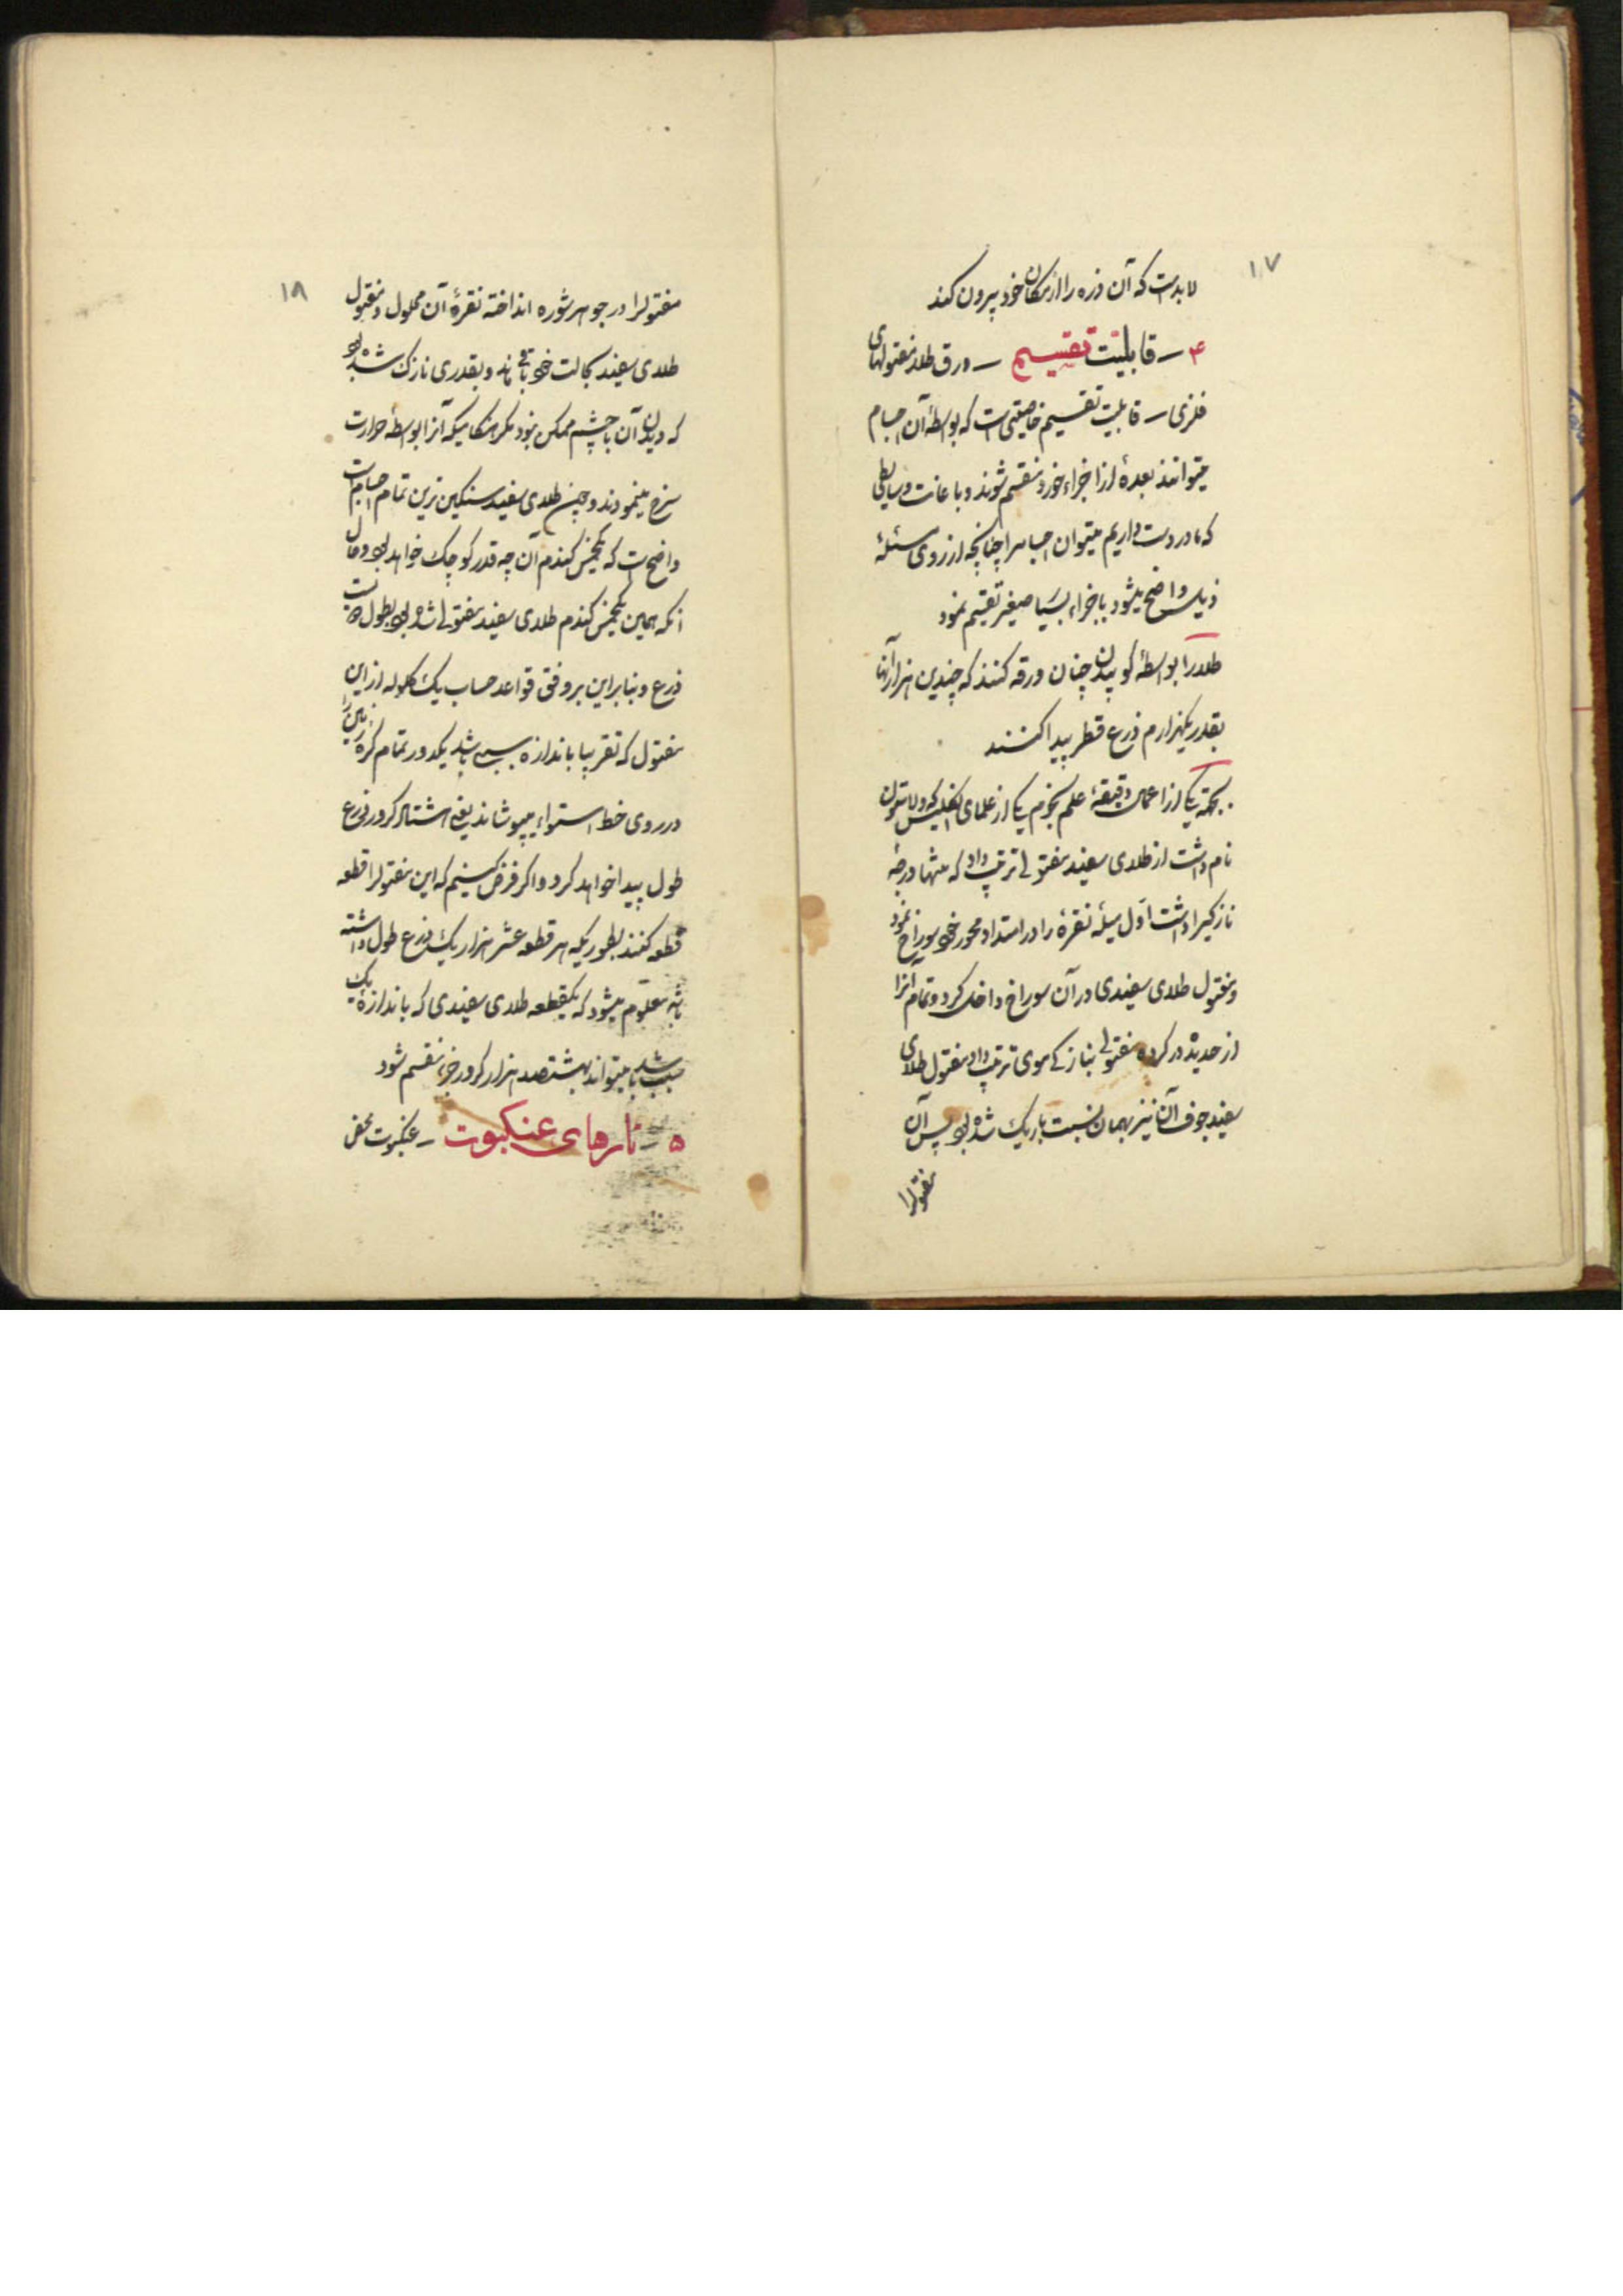 ۱۷
لابدست که آن ذره را از مکان خود بیرون کند
۴ – قابلیت تقسیم – ورق طلا و مفتولهای
فلزی – قابلیت تقسیم خاصیتی است که بواسطهٔ آن اجسام
میتوانند بعدهٔ از اجزاء خورد منقسم شوند و باعانت وسایطی
که ما در دست داریم میتوان اجسام را چنانچه از روی مسئلهٔ
ذیل واضح میشود باجزاء بسیار صغیر تقسیم نمود
طلا را بواسطهٔ کوبیدن چنان ورقه کنند که چندین هزار آنها
بقدر یکهزارم ذرع قطر پیدا کنند
بجهة یکی از اعمال دقیقهٔ علم نجوم یکی از علمای انگلیس که ولاستون
نام داشت از طلای سفید مفتولی ترتیب داد که منتها درجهٔ
نازکی را داشت اول میلهٔ نقرهٔ را در امتداد محور خود سوراخ نمود
و مفتول طلای سفیدی در آن سوراخ داخل کرد و تمام آنرا
از حدیده در کرده مفتولی بنازکی موی ترتیب داد مفتول طلای
سفید جوف آن نیز بهمان نسبت باریک شده بود پس آن
مفتولرا
۱۸
مفتولرا در جوهر شوره انداخته نقرهٔ آن محلول و مفتول
طلای سفید بحالت خود باقی ماند و بقدری نازک شده بود
که دیدن آن با چشم ممکن نبود مگر هنگامیکه آنرا بواسطهٔ حرارت
سرخ مینمودند و چون طلای سفید سنگین ترین تمام اجسام است
واضح است که یکخمس گندم آن چه قدر کوچک خواهد بود و حال
آنکه همین یکخمس گندم طلای سفید مفتولی شده بود بطول
ذرع و بنابراین بر وفق قواعد حساب یک گلوله از این
مفتول که تقریبا باندازه سیب باشد یکدور تمام کره زمین را
در روی خط استواء میپوشاند یعنی هشتاد کرور ذرع
طول پیدا خواهد کرد و اگر فرض کنیم که این مفتولرا قطعه
قطعه کنند بطوریکه هر قطعه عشر هزار یک ذرع طول داشته
باشد معلوم میشود که یکقطعه طلای سفیدی که باندازهٔ یک
سیب باشد میتواند بهشتصد هزار کرور جزء منقسم شود
۵ – تارهای عنکبوت – عنکبوت محض